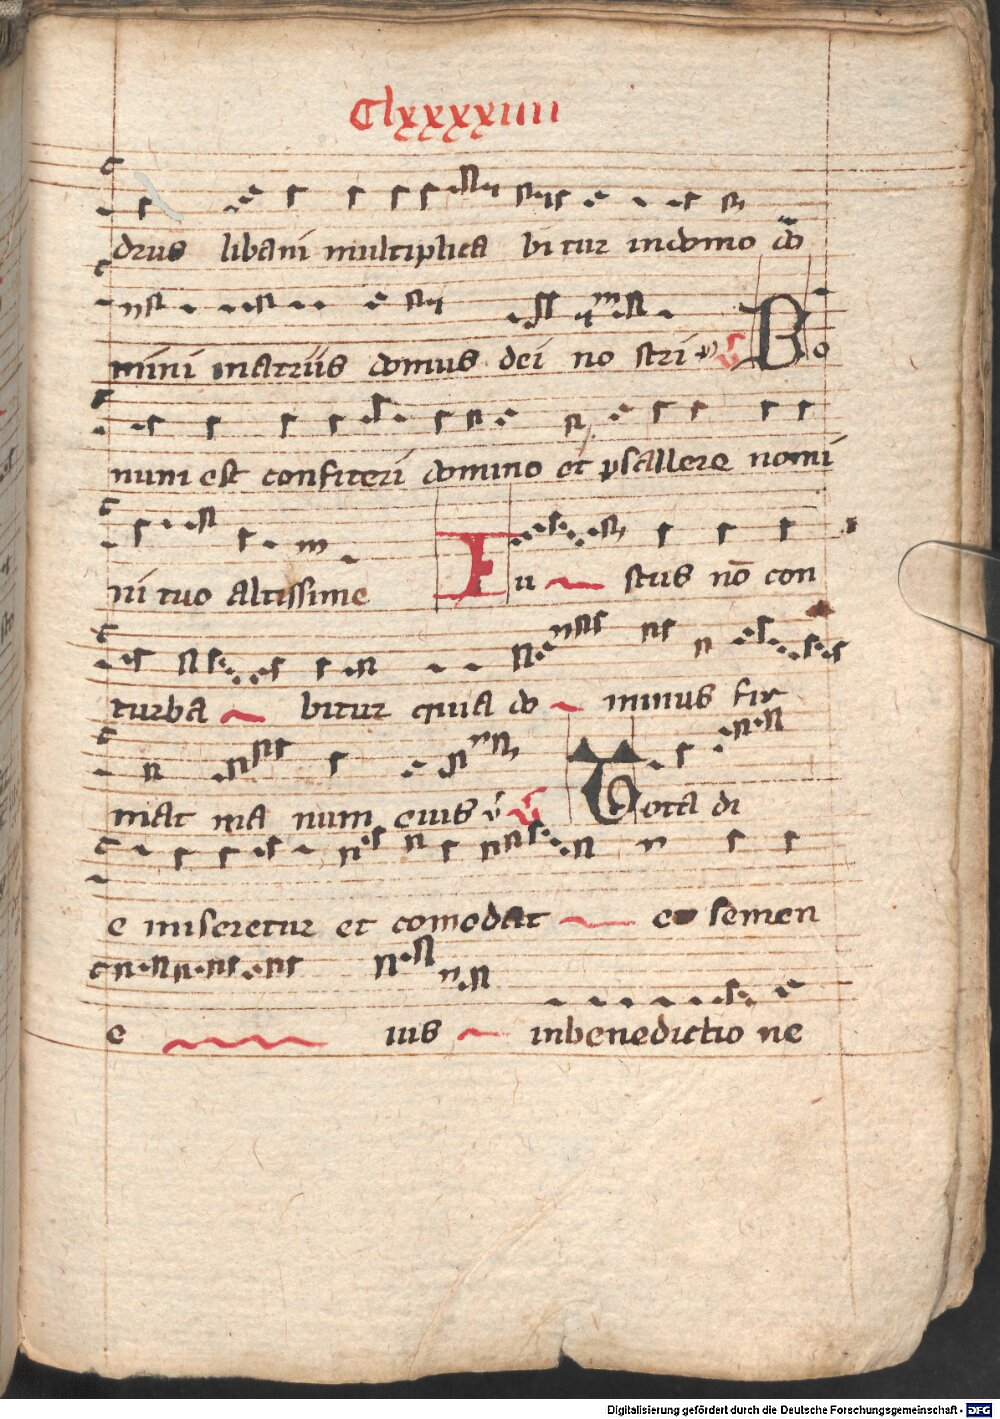 Clxxxxiiii
drus libani multiplica bitur in domo dō
mini in atriis domus dei no stri Bo
num est confiteri domino et psallere nomi
ni tuo altissime Iu stus nō con
turba bitur quia do minus fir
mat ma num eius Tota di
e miseretur et comodat e semen
e ius in benedictio ne
Digitalisierung gefördert durch die Deutsche Forschungsgemeinschaft - DFG